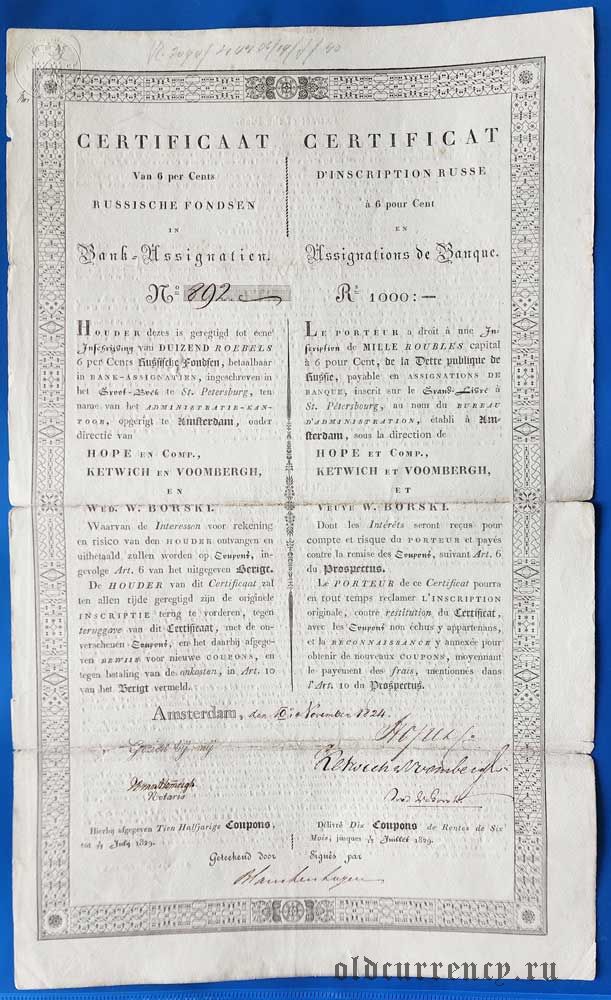 CERTIFICAAT
Van 6 per Cents
RUSSISCHE FONDSEN
IN
Bank-Assignatien.
No. 892.
HOUDER dezes is geregtigd tot eene
Inschrijving van DUIZEND ROEBELS
6 per Cents Russische Fondsen, betaalbaar
in BANK-ASSIGNATIEN, ingeschreven in
het Groot-Boek te St. Petersburg, ten
name van het ADMINISTRATIE-KAN-
TOOR, opgerigt te Amsterdam, onder
directië van
HOPE EN COMP.,
KETWICH EN VOOMBERGH,
EN
WED. W. BORSKI.
Waarvan de Interessen voor rekening
en risico van den HOUDER ontvangen en
uitbetaald zullen worden op Coupons, in-
gevolge Art. 6 van het uitgegeven Berigt.
De HOUDER van dit Certificaat zal
ten allen tijde geregtigd zijn de originele
INSCRIPTIE terug te vorderen, tegen
teruggave van dit Certificaat, met de on-
verschenen Coupons, en het daarbij afgege-
ven BEWIJS voor nieuwe COUPONS, en
tegen betaling van de onkosten, in Art. 10
van het Berigt vermeld.
CERTIFICAT
D'INSCRIPTION RUSSE
à 6 pour Cent
EN
Assignations de Banque.
Rs. 1000:—
LE PORTEUR a droit à une In-
scription de MILLE ROUBLES capital
à 6 pour Cent, de la Dette publique de
Russie, payable en ASSIGNATIONS DE
BANQUE, inscrit sur le Grand-Livre à
St. Pétersbourg, au nom du BUREAU
D'ADMINISTRATION, établi à Am-
sterdam, sous la direction de
HOPE ET COMP.,
KETWICH ET VOOMBERGH,
ET
VEUVE W. BORSKI.
Dont les Intérêts seront reçus pour
compte et risque du PORTEUR et payés
contre la remise des Coupons, suivant Art. 6
du Prospectus.
Le PORTEUR de ce Certificat pourra
en tout temps reclamer L'INSCRIPTION
originale, contre restitution du Certificat,
avec les Coupons non échus y appartenans,
et la RECONNAISSANCE y annexée pour
obtenir de nouveaux COUPONS, moyennant
le payement des frais, mentionnés dans
l'Art. 10 du Prospectus.
Amsterdam, den November 1824.
Gezien bij mij
Ketwich & Voombergh
Notaris
Hierbij afgegeven Tien Halfjarige Coupons,
tot Julij 1829.
Délivré Dix Coupons de Rentes de Six
Mois, jusques Juillet 1829.
Geteekend door Signés par
oldcurrency.ru